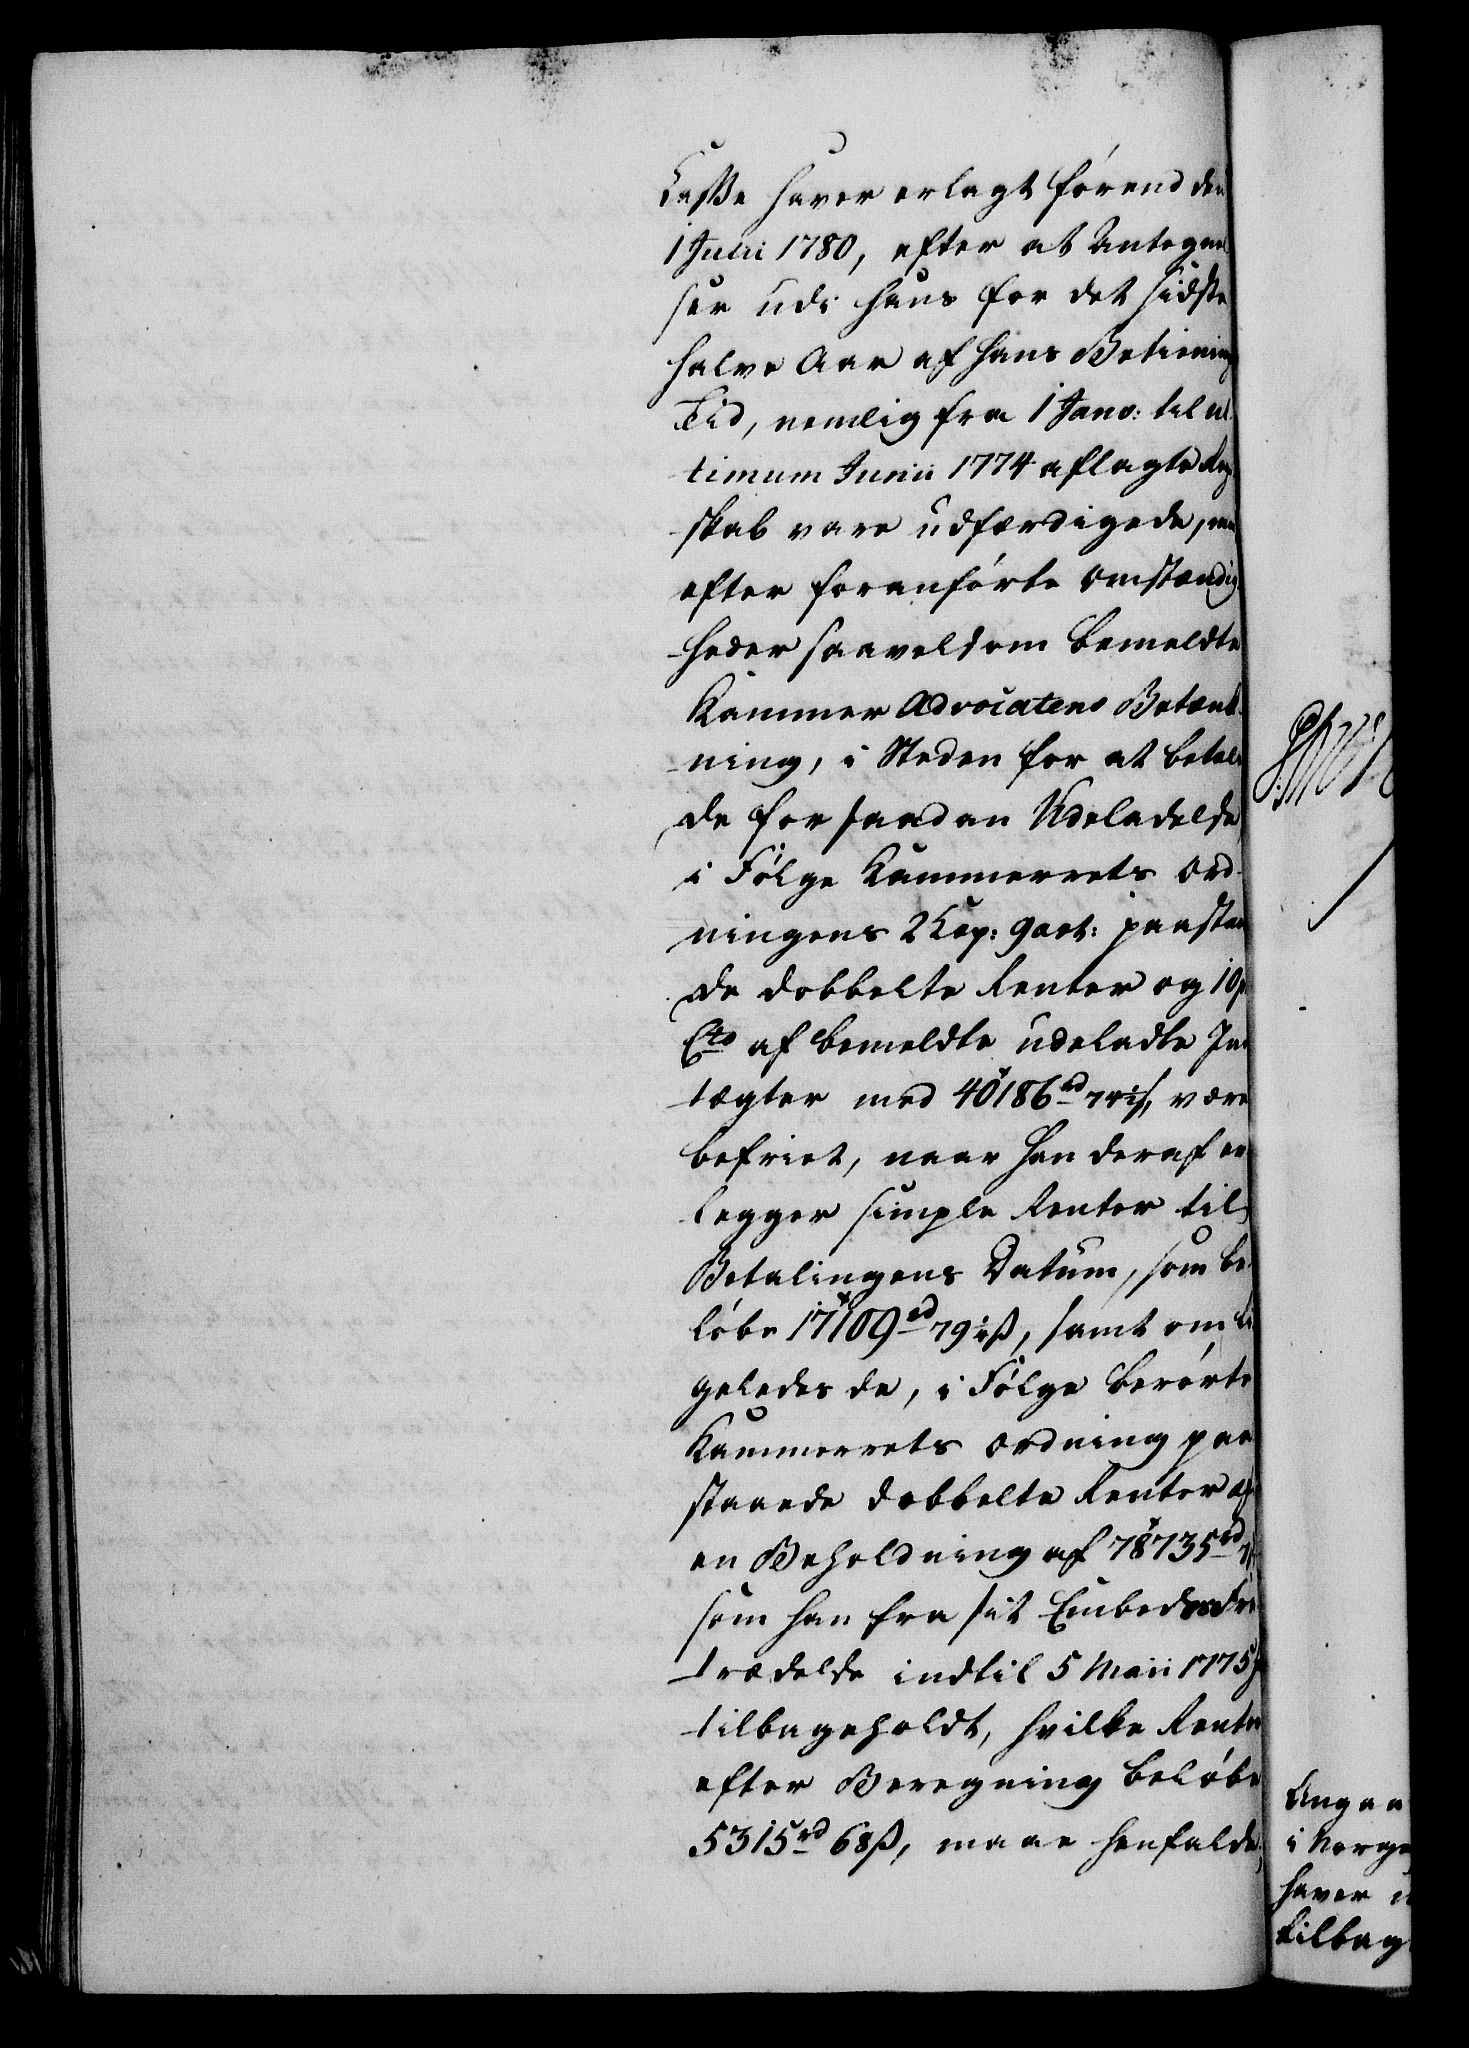 Casse haver erlagt förend den
1 Julii 1780, efter at Antegnel
ser udi hans for det sidste
halve Aar af hans Betienings
Tid, nemlig fra 1 Janv: til ul
timum Junii 1774 aflagte Reg
skab vare udfærdigede, maa
efter foranförte Omstændig
heder saavelsom bemeldte
Kammer Advocatens Betænk
ning, i Steden for at betale
de for saadan Udeladelse
i Fölge Kammerrets Ord
ningens 2 Cap: 9 art: paastaae
de dobbelte Renter og 10 p
Cto af bemeldte udeladte Ind
tægter med 40186 rd 74 ß, være
befriet, naar han deraf er
legger simple Renter til
Betalingens Datum, som be
löbe 17109 rd 79 ß, samt om li
geledes de, i Fölge berörte
Kammerrets Ordning paa
staaede dobbelte Renter af
en Beholdning af 78735 rd
som han fra sit Embeds Fra
trædelse indtil 5 Maii 1775
tilbageholdt, hvilke Renter
efter Beregning belöbe
5315 rd 68 ß, maae henfalde,
Angaa
i Norge
haver
tilbag